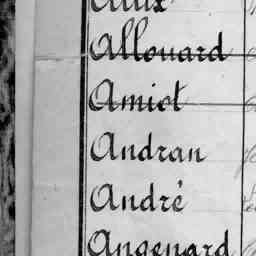 Allouard
Amiot
Andran
André
Angenard